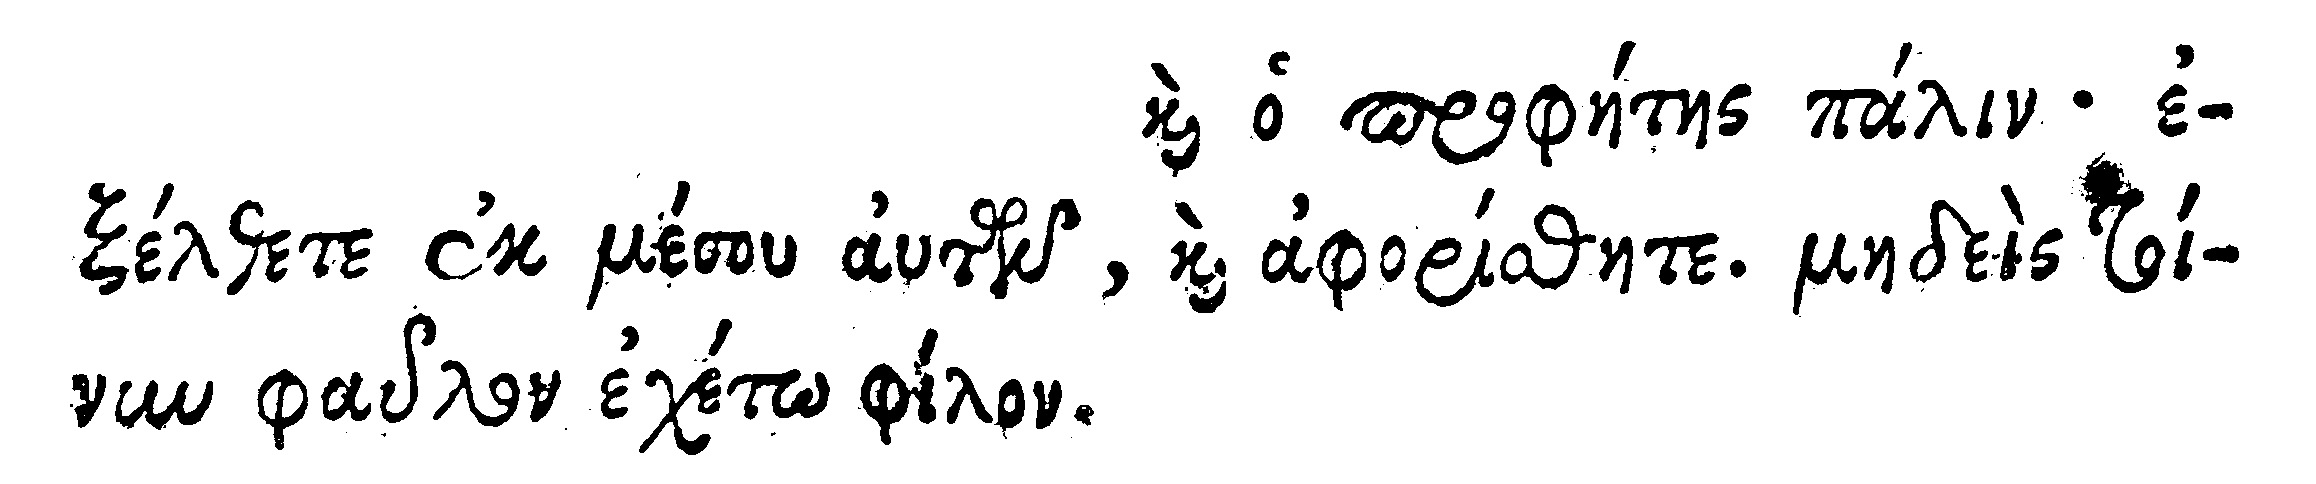 ϗ̀ ὁ προφήτης πάλιν· ἐ-
ξέλθετε ἐκ μέσου ἀυτῶν, ϗ̀ ἀφορίσθητε. μηδεὶς τοί-
νυν φαῦλον ἐχέτω φίλον.